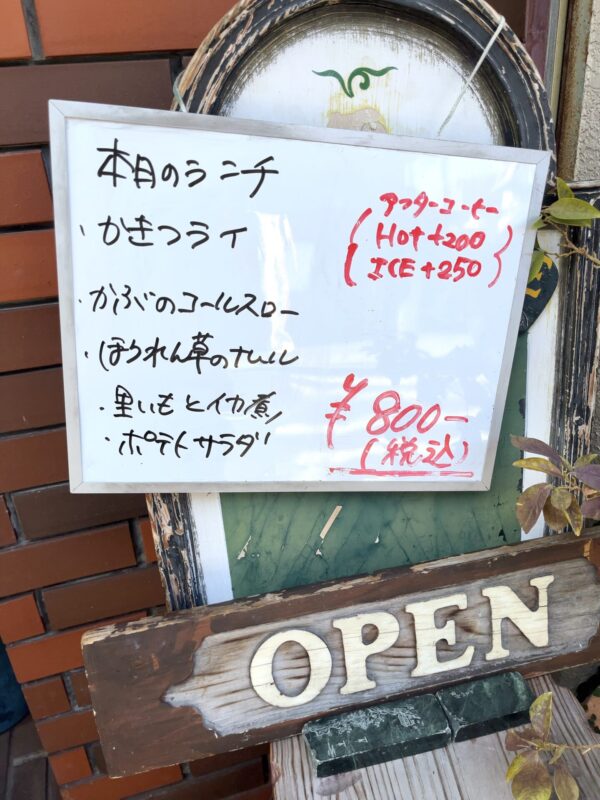 本日のランチ
・かきフライ
・かぶのコールスロー
・ほうれん草のナムル
・里いもとイカ煮
・ポテトサラダ
アフターコーヒー
Hot+200
ICE+250
¥800-
(税込)
OPEN